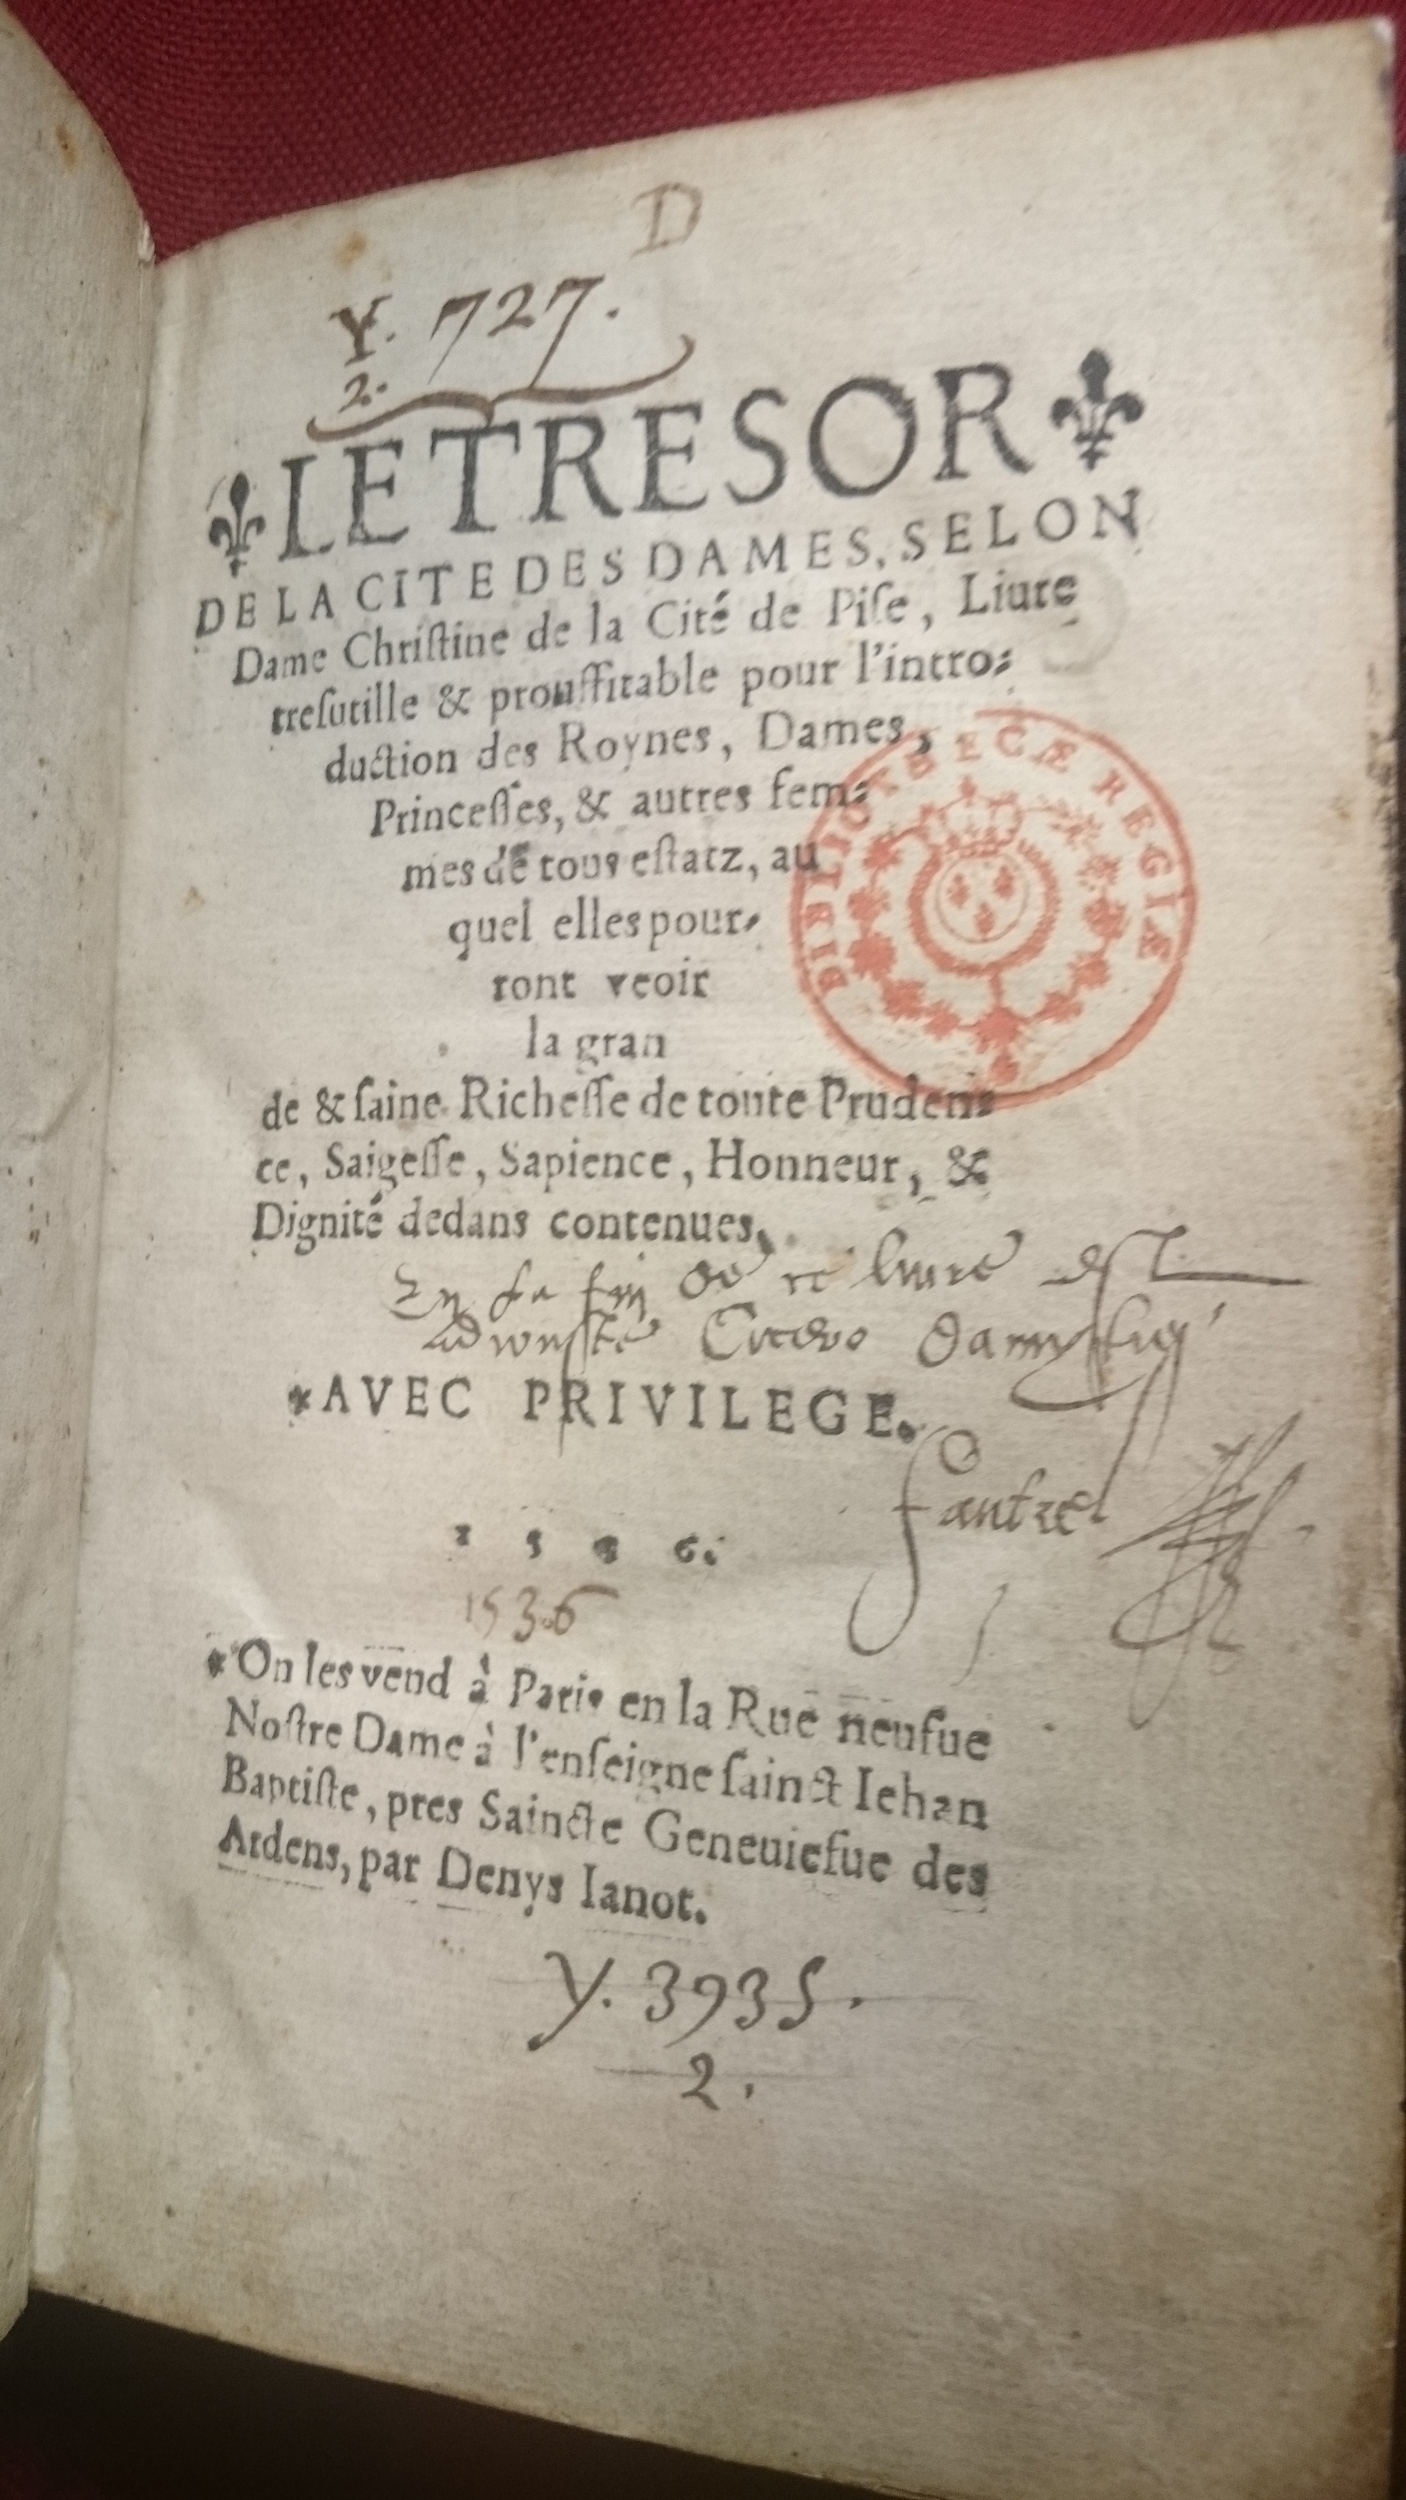 D
Y. 727.
2.
LE TRESOR
DE LA CITE DES DAMES, SELON
Dame Chriſtine de la Cité de Piſe, Liure
treſutille & prouffitable pour l'intro⸗
duction des Roynes, Dames,
Princeſſes, & autres fem⸗
mes de tous eſtatz, au
quel elles pour⸗
ront veoir
la gran
de & ſaine Richeſſe de toute Pruden⸗
ce, Saigeſſe, Sapience, Honneur, &
Dignité dedans contenues.
BIBLIOTHECÆ REGIÆ
En la fin de ce livre est
AVEC PRIVILEGE.
1 5 3 6.
1536
On les vend à Paris en la Rue neufue
Noſtre Dame à l'enſeigne ſainct Iehan
Baptiſte, pres Saincte Geneuiefue des
Ardens, par Denys Ianot.
Y. 3935.
2.